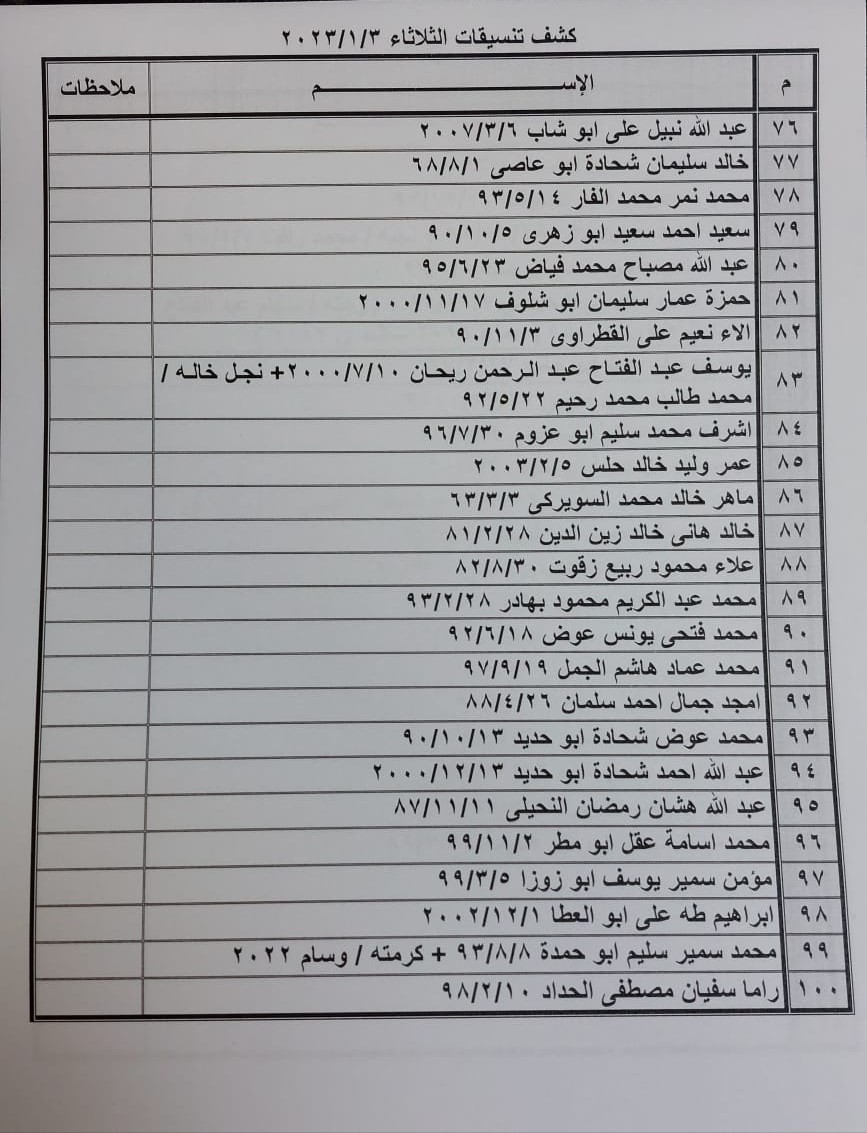 كشف تنسيقات الثلاثاء ٢٠٢٣/١/٣
م الإســـــــــم ملاحظات
٧٦ عبد الله نبيل على ابو شاب ٢٠٠٧/٣/٦
٧٧ خالد سليمان شحادة ابو عاصى ٦٨/٨/١
٧٨ محمد نمر محمد الفار ٩٣/٥/١٤
٧٩ سعيد احمد سعيد ابو زهرى ٩٠/١٠/٥
٨٠ عبد الله مصباح محمد فياض ٩٥/٦/٢٣
٨١ حمزة عمار سليمان ابو شلوف ٢٠٠٠/١١/١٧
٨٢ الاء نعيم على القطراوى ٩٠/١١/٣
٨٣ يوسف عبد الفتاح عبد الرحمن ريحان ٢٠٠٠/٧/١٠+ نجل خاله /
محمد طالب محمد رحيم ٩٢/٥/٢٢
٨٤ اشرف محمد سليم ابو عزوم ٩٦/٧/٣٠
٨٥ عمر وليد خالد حلس ٢٠٠٣/٢/٥
٨٦ ماهر خالد محمد السويركى ٦٣/٣/٣
٨٧ خالد هانى خالد زين الدين ٨١/٢/٢٨
٨٨ علاء محمود ربيع زقوت ٨٢/٨/٣٠
٨٩ محمد عبد الكريم محمود بهادر ٩٣/٢/٢٨
٩٠ محمد فتحى يونس عوض ٩٢/٦/١٨
٩١ محمد عماد هاشم الجمل ٩٧/٩/١٩
٩٢ امجد جمال احمد سلمان ٨٨/٤/٢٦
٩٣ محمد عوض شحادة ابو حديد ٩٠/١٠/١٣
٩٤ عبد الله احمد شحادة ابو حديد ٢٠٠٠/١٢/١٣
٩٥ عبد الله هشان رمضان النحيلى ٨٧/١١/١١
٩٦ محمد اسامة عقل ابو مطر ٩٩/١١/٢
٩٧ مؤمن سمير يوسف ابو زوزا ٩٩/٣/٥
٩٨ ابراهيم طه على ابو العطا ٢٠٠٢/١٢/١
٩٩ محمد سمير سليم ابو حمدة ٩٣/٨/٨ + كرمته / وسام ٢٠٢٢
١٠٠ راما سفيان مصطفى الحداد ٩٨/٢/١٠